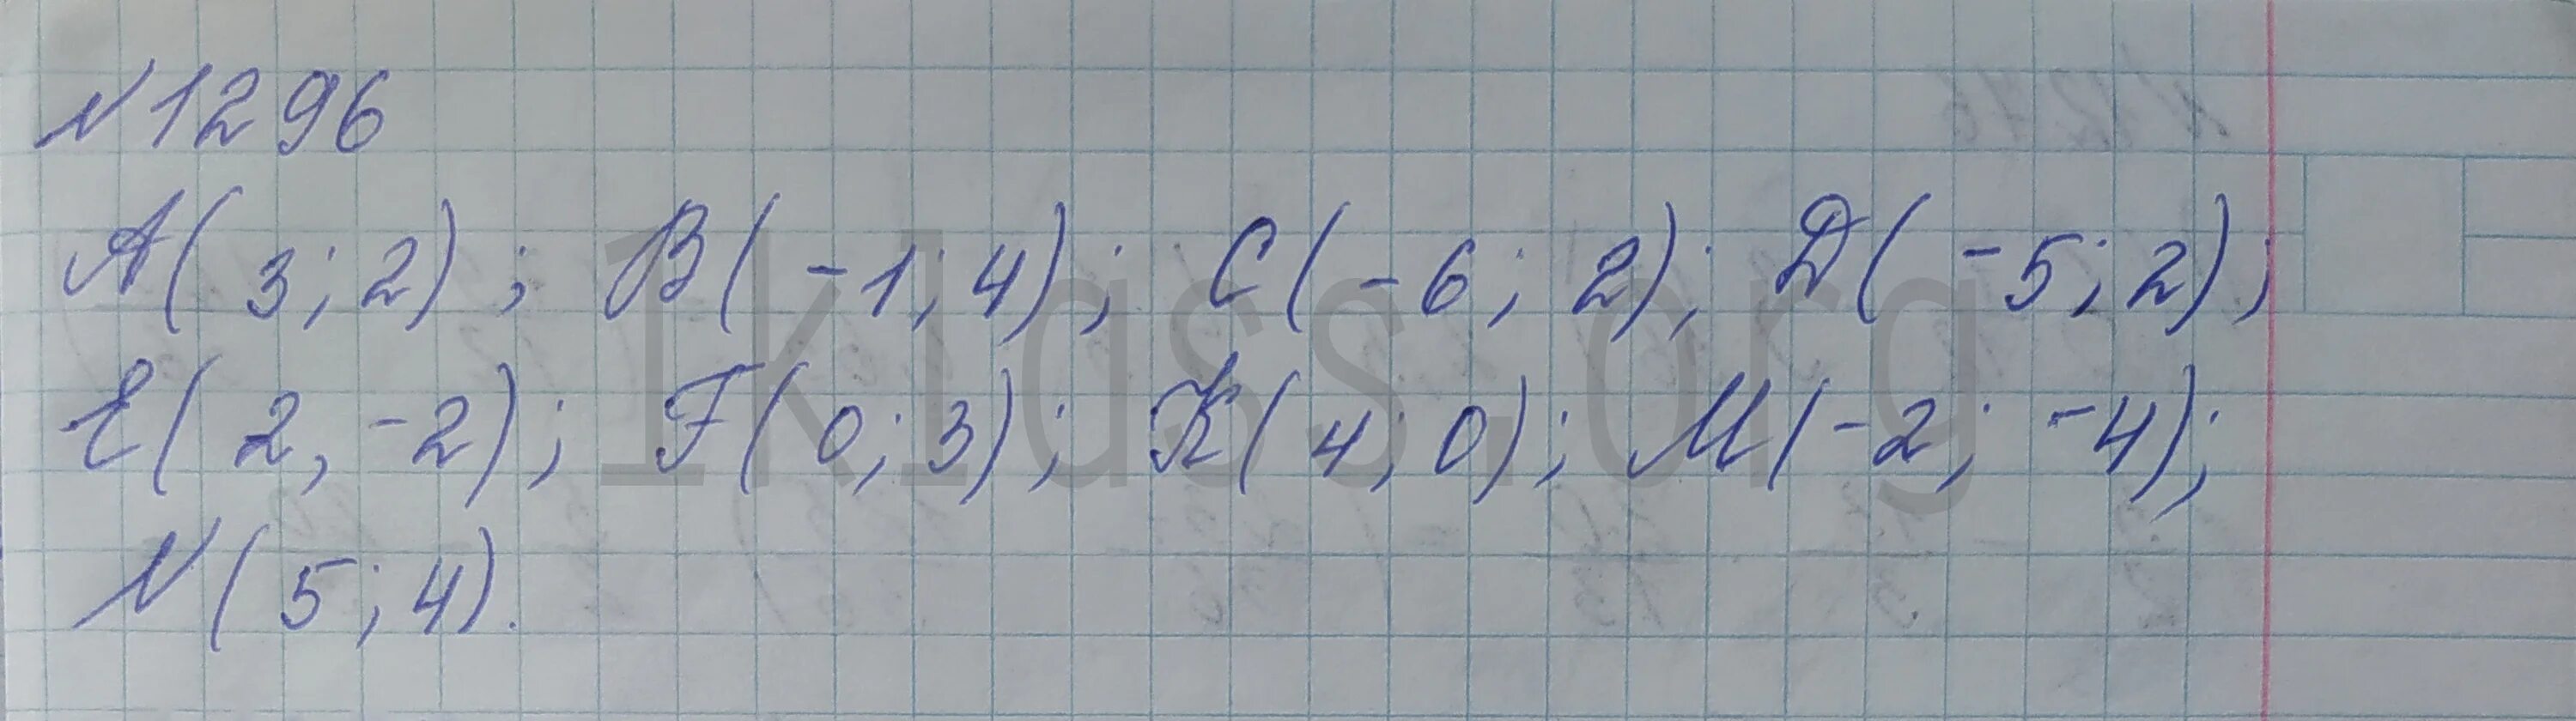 N1296
A(3;2); B(-1;4); C(-6;2); D(-5;2);
E(2,-2); F(0;3); K(4;0); M(-2;-4);
N(5;4).
1klass.org